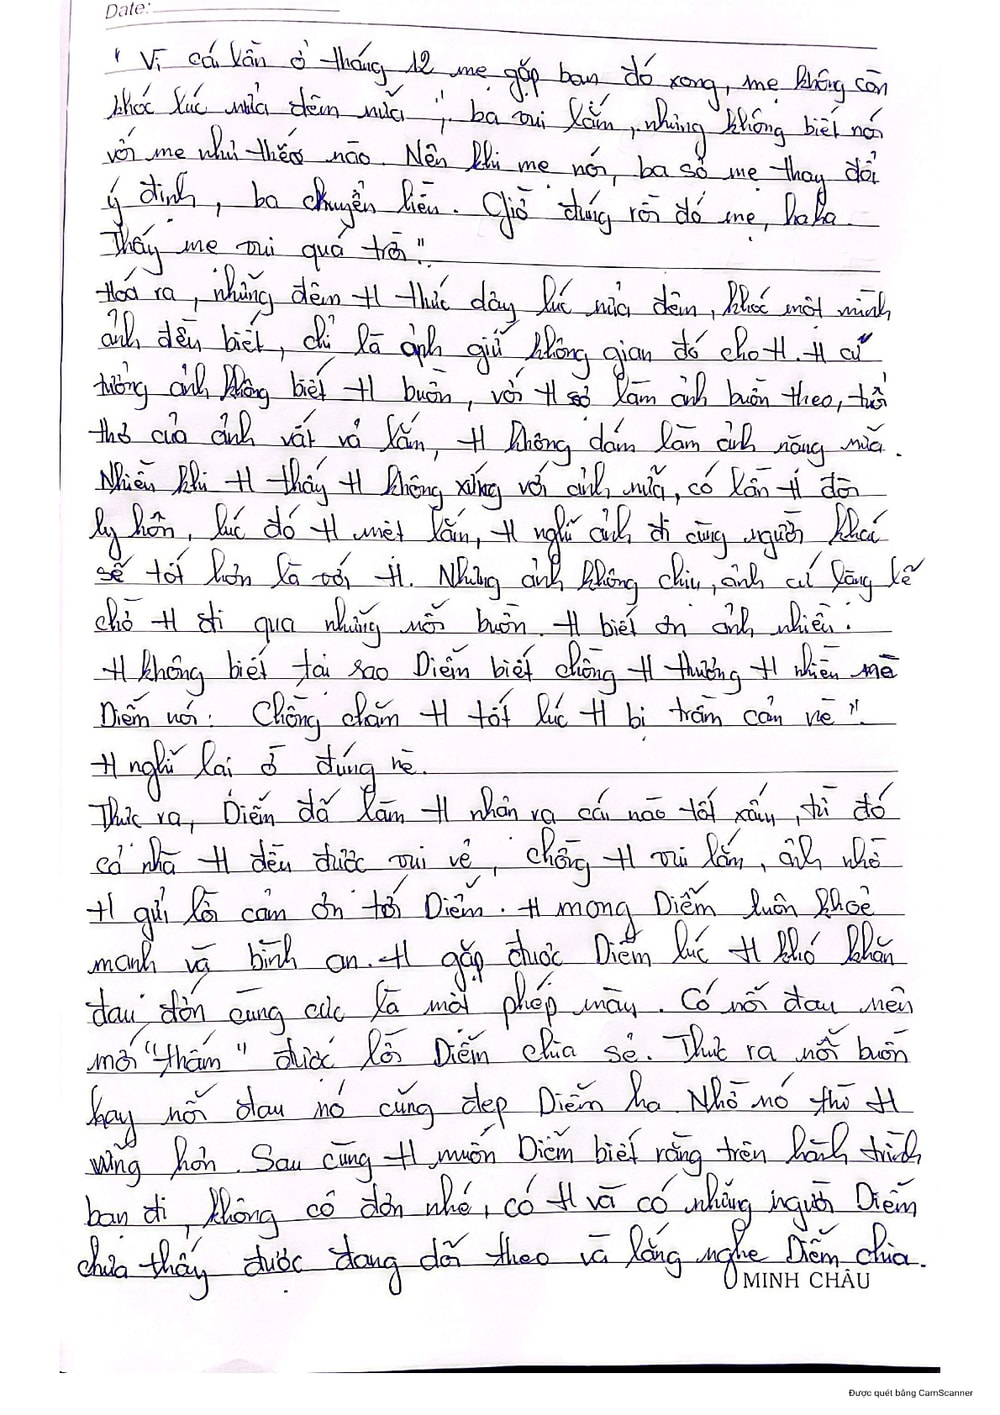 Date:
" Vì cái lần ở tháng 12 mẹ gặp bạn đó xong, mẹ không còn
khóc lúc nửa đêm nữa ", ba vui lắm, nhưng không biết nói
với mẹ như thế nào. Nên khi mẹ nói, ba sợ mẹ thay đổi
ý định, ba chuyển liền. Giờ đúng rồi đó mẹ, haha.
Thấy mẹ vui quá trời"
Hoá ra, những đêm H thức dậy lúc nửa đêm, khóc một mình
ảnh đều biết, chỉ là ảnh giữ không gian đó cho H. H cứ
tưởng ảnh không biết H buồn, với H sợ làm ảnh buồn theo, tuổi
thơ của ảnh vất vả lắm, H không dám làm ảnh nặng nữa.
Nhiều khi H thấy H không xứng với ảnh nữa, có lần H đòi
ly hôn, lúc đó H mệt lắm, H nghĩ ảnh đi cùng người khác
sẽ tốt hơn là với H. Nhưng ảnh không chịu, ảnh cứ lặng lẽ
chờ H đi qua những nỗi buồn. H biết ơn ảnh nhiều.
H không biết tại sao Diễm biết chồng H thương H nhiều mà
Diễm nói: Chồng chăm H tốt lúc H bị trầm cảm nè ".
H nghĩ lại ồ đúng nè.
Thực ra, Diễm đã làm H nhận ra cái nào tốt xấu, từ đó
cả nhà H đều được vui vẻ, chồng H vui lắm, ảnh nhờ
H gửi lời cảm ơn tới Diễm. H mong Diễm luôn khoẻ
mạnh và bình an. H gặp được Diễm lúc H khó khăn
đau đớn cùng cực là một phép màu. Có nỗi đau nên
mới "thấm" được lời Diễm chia sẻ. Thực ra nỗi buồn
hay nỗi đau nó cũng đẹp Diễm ha. Nhờ nó thì H
vững hơn. Sau cùng H muốn Diễm biết rằng trên hành trình
bạn đi, không cô đơn nhé, có H và có những người Diễm
chưa thấy được đang dõi theo và lắng nghe Diễm chia.
MINH CHÂU
Được quét bằng CamScanner